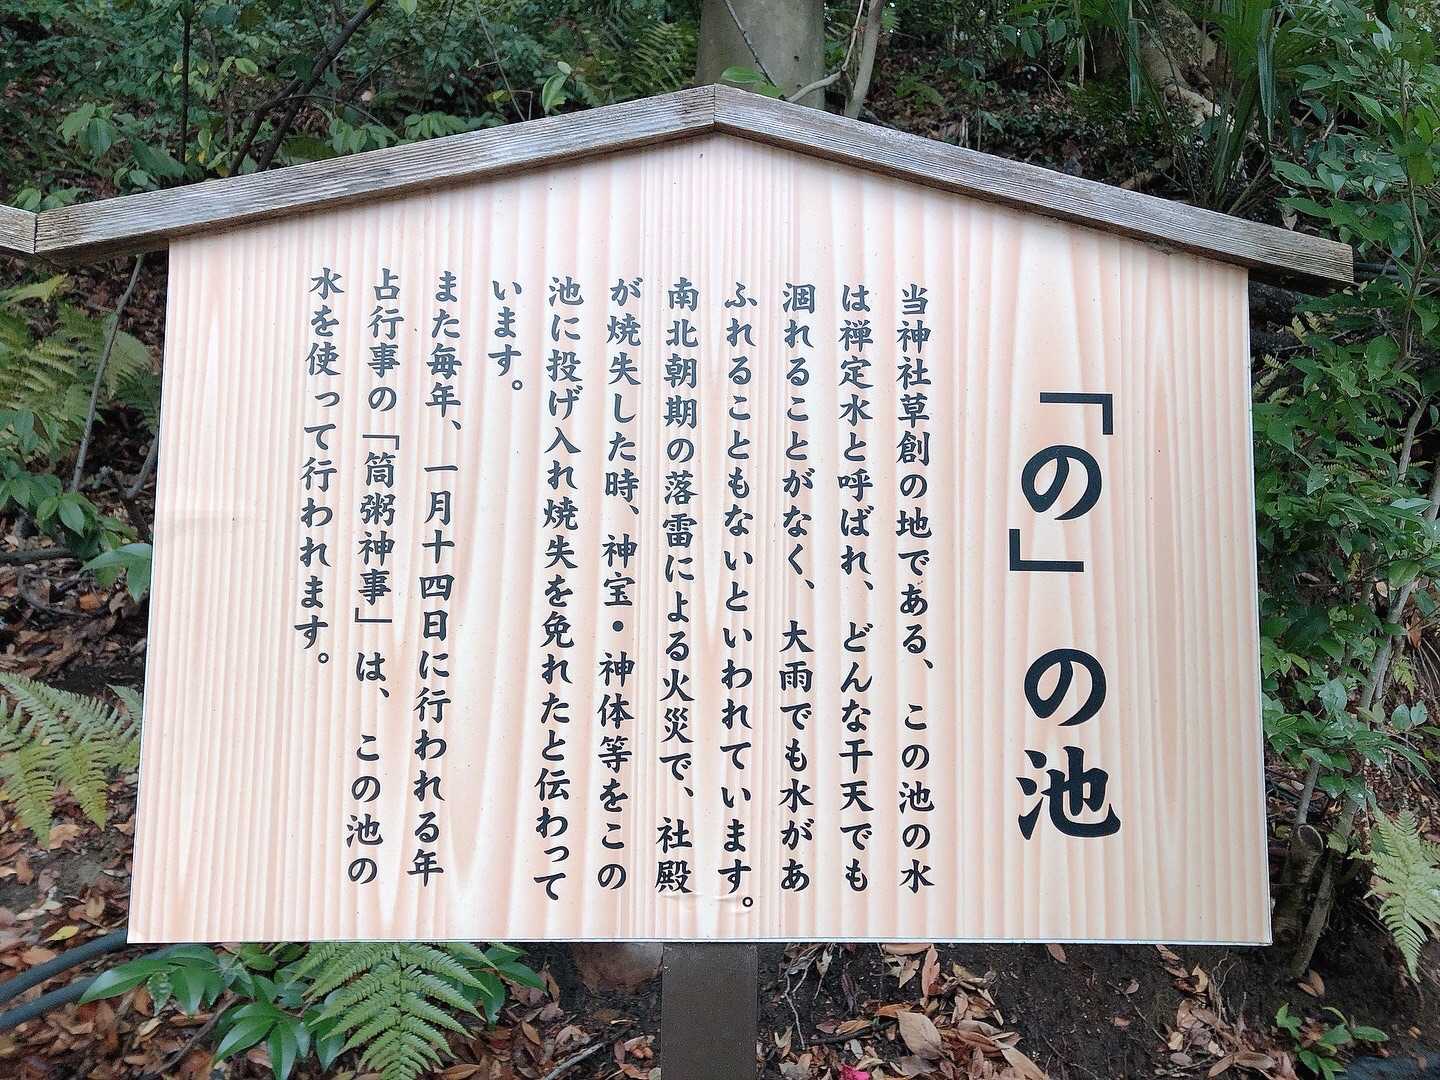 「の」の池
当神社草創の地である、この池の水
は禅定水と呼ばれ、どんな干天でも
涸れることがなく、大雨でも水があ
ふれることもないといわれています。
南北朝期の落雷による火災で、社殿
が焼失した時、神宝・神体等をこの
池に投げ入れ焼失を免れたと伝わって
います。
また毎年、一月十四日に行われる年
占行事の「筒粥神事」は、この池の
水を使って行われます。